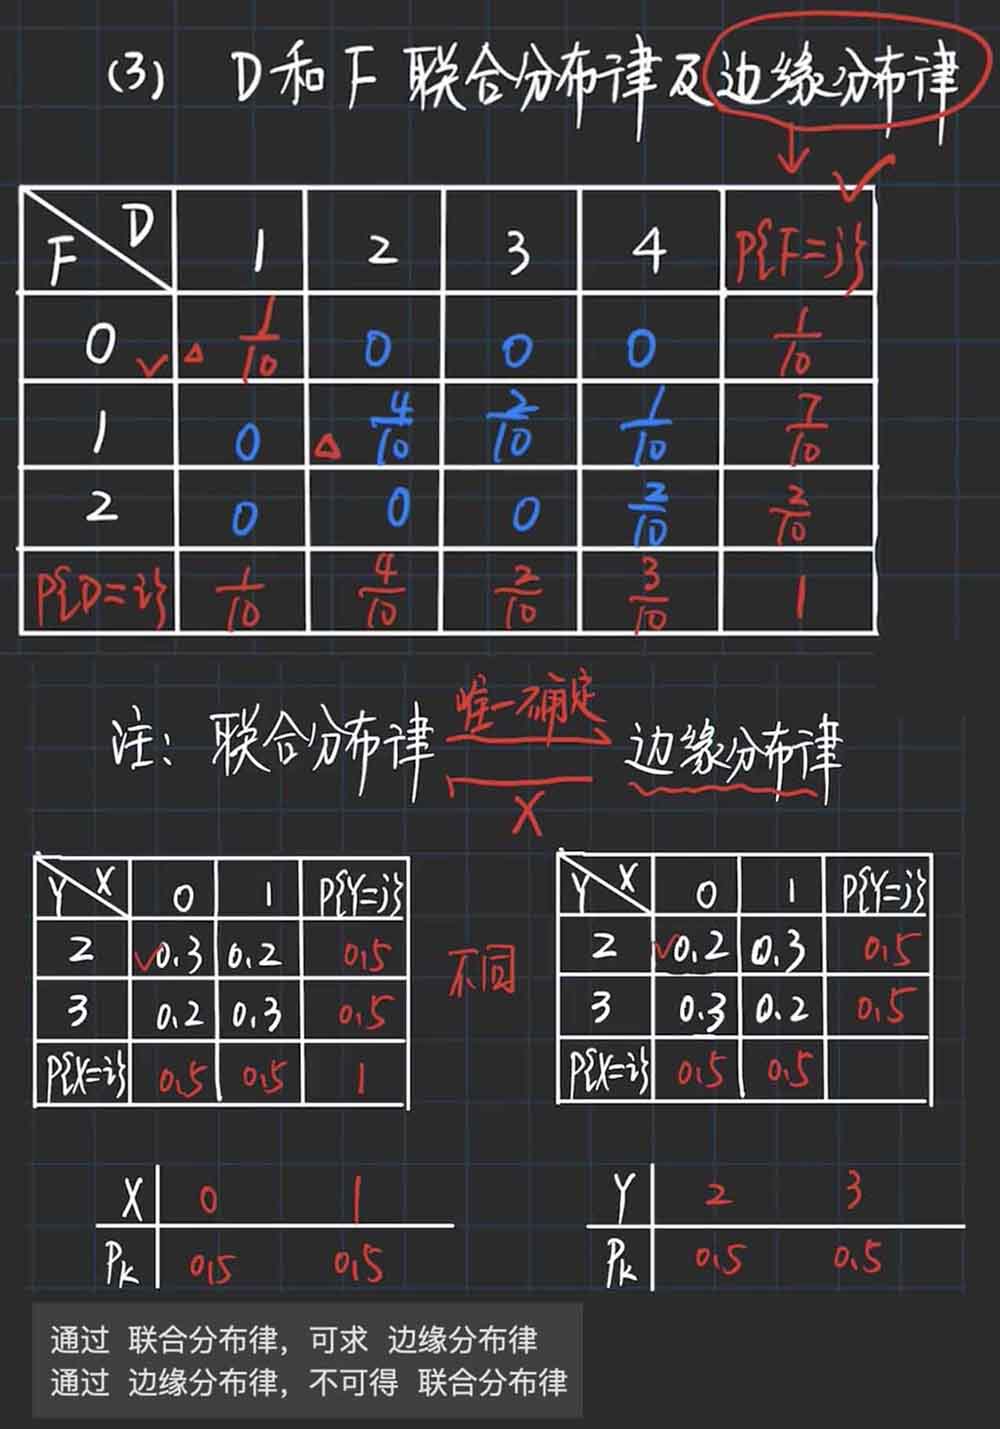 (3) D和F 联合分布律及边缘分布律
F D 1 2 3 4 P{F=j}
0 1/10 0 0 0 1/10
1 0 4/10 2/10 1/10 7/10
2 0 0 0 2/10 2/10
P{D=i} 1/10 4/10 2/10 3/10 1
唯一确定
注: 联合分布律 边缘分布律
X
Y X 0 1 P{Y=j}
2 0.3 0.2 0.5
3 0.2 0.3 0.5
P{X=i} 0.5 0.5 1
不同
Y X 0 1 P{Y=j}
2 0.2 0.3 0.5
3 0.3 0.2 0.5
P{X=i} 0.5 0.5
X 0 1
Pk 0.5 0.5
Y 2 3
Pk 0.5 0.5
通过 联合分布律, 可求 边缘分布律
通过 边缘分布律, 不可得 联合分布律